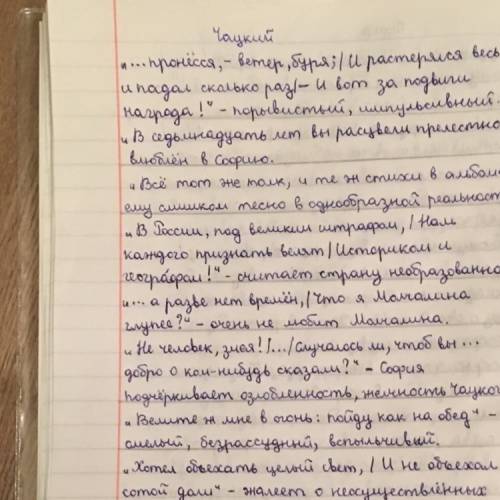 Чацкий
„... пронёсся, - ветер, буря; / И растерялся весь
и падал сколько раз / – И вот за подвиги
награда!" - порывистый, импульсивный.
„В седьмнадцать лет вы расцвели прелестно
влюблён в Софию.
„Всё тот же толк, и те ж стихи в альбом
ему слишком тесно в однообразной реальност
„В России, под великим штрафом, / Нам
каждого признать велят / Историком и
географом!" - считает страну необразованно
„... а разве нет времён, / Что я Молчалина
глупее?" - очень не любит Молчалина.
„Не человек, змея! /.../ Случалось ли, чтоб вы ...
добро о ком-нибудь сказали?" - София
подчёркивает озлобленность, желчность Чацког
„Велите ж мне в огонь: пойду как на обед" -
смелый, безрассудный, вспыльчивый.
„Хотел объехать целый свет, / И не объехал
сотой доли" - жалеет о неосуществлённых